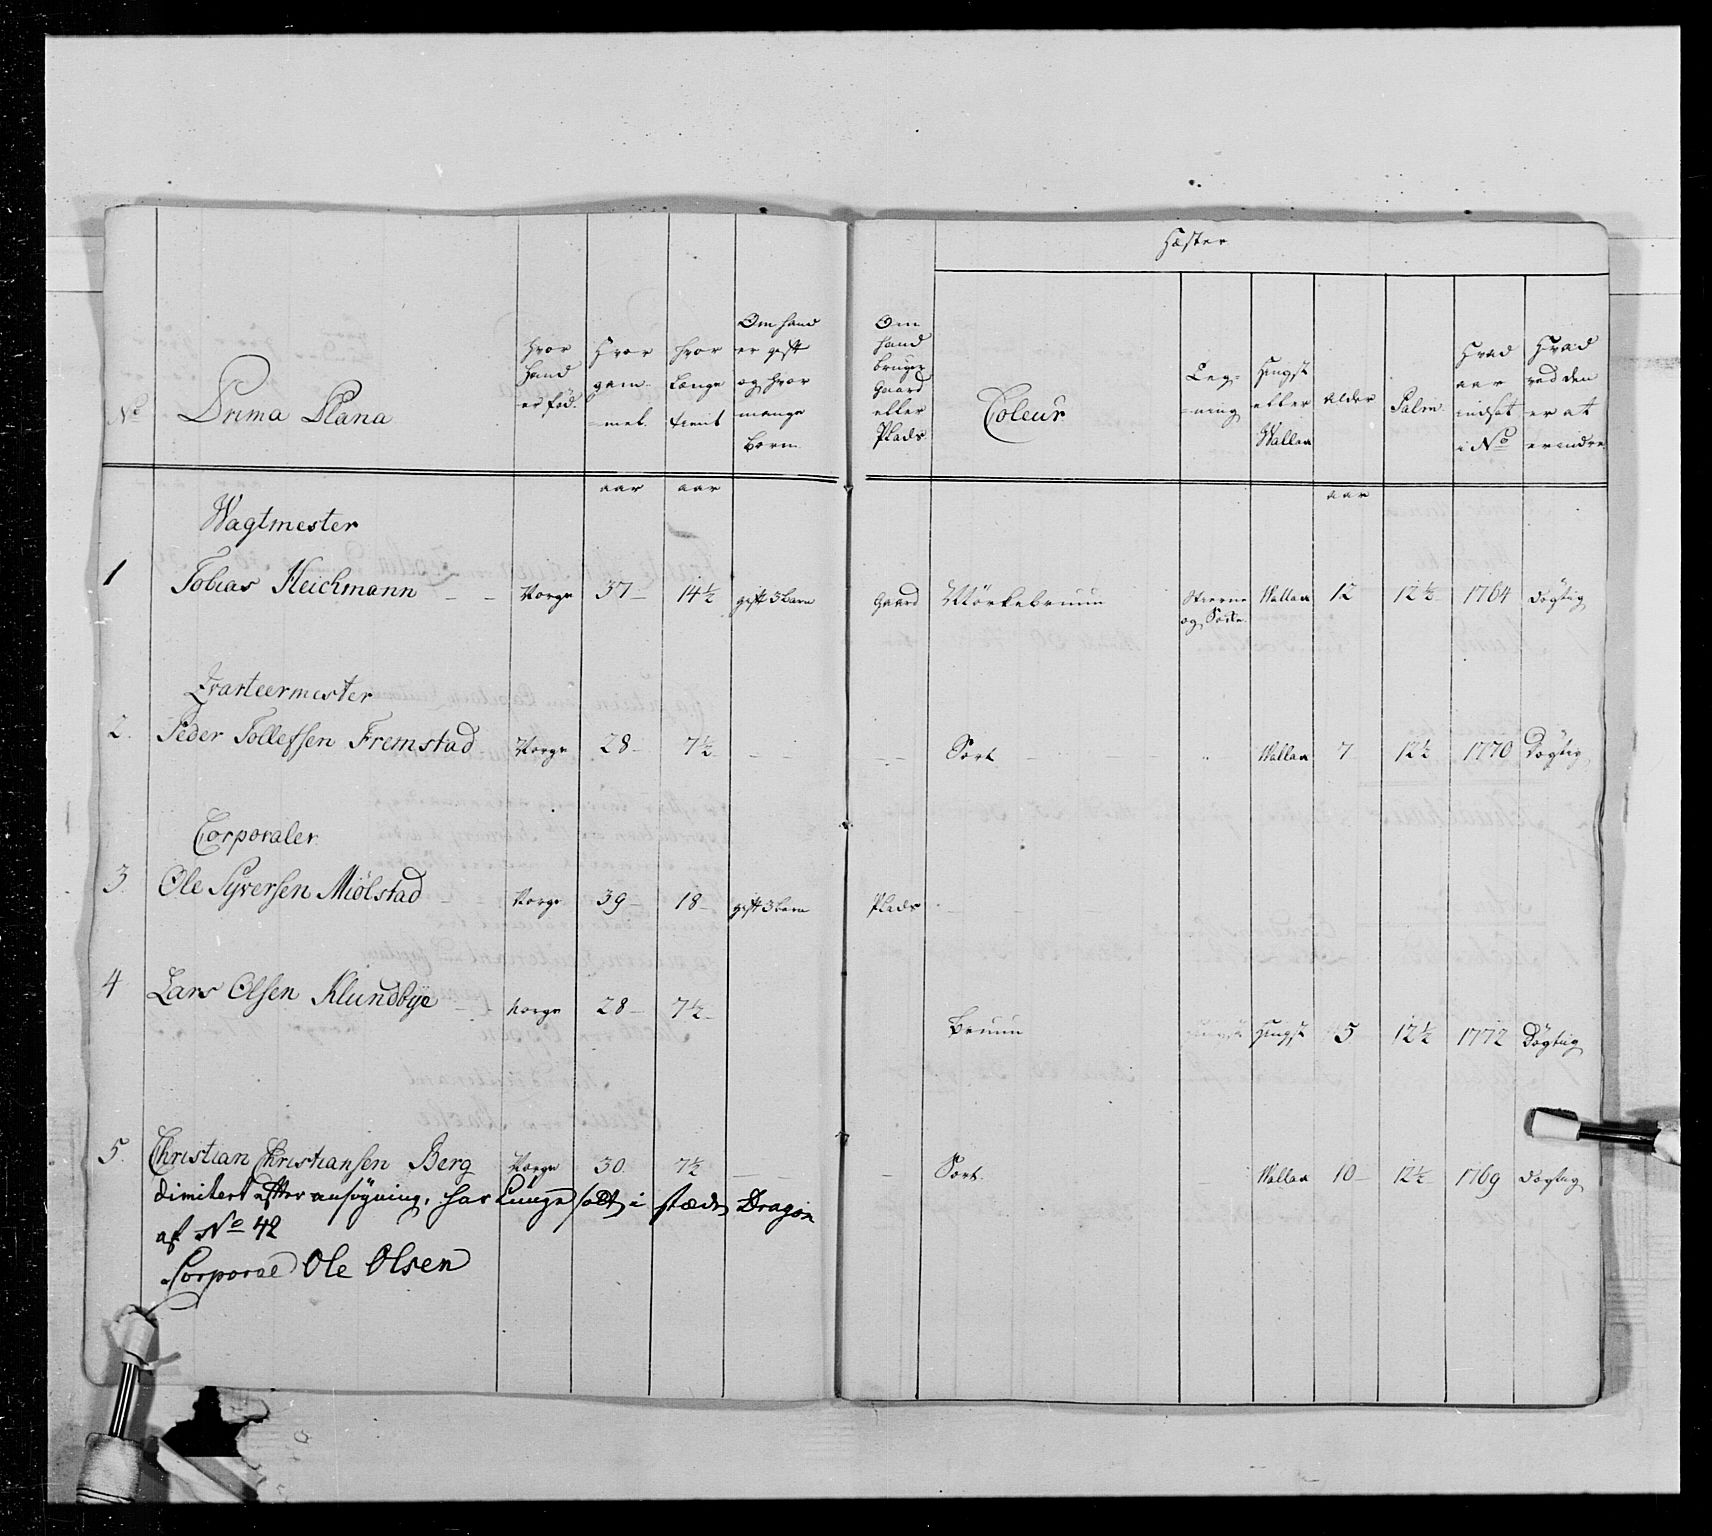 Hæster
No
Prima Plana
Hvor
Hand
er föd.
Hvor
gam-
-mel.
hvor
Længe
tient
Om hand
er gift
og hvor
mange
Børn
Om
hand
bruger
Gaard
eller
Plads
Coleur
Leg-
-ning
Hingst
eller
Wallan
Alder
Palm.
Hvad
aar
indsat
i No
Hvad
ved den
er at
erindre
aar aar aar
Wagtmester
1 Tobias Heichmann – – Norge 37– 14½ gift 3 barn Gaard Mörkebruun Stierne og Wallan 12 12½ 1764 Dögtig
Qvarteermester
2. Peder Tollefsen Fremstad Norge 28– 7½ – – – – Sort – – – " Wallan 7 12½ 1770 Dögtig
Corporaler
3. Ole Syversen Miölstad – Norge 39– 18– gift 3 barn Plads – – –
4 Lars Olsen Klundbye – Norge 28– 7½– Bruun Hingst 5 12½ 1772 Dögtig
5. Christian Christiansen Berg Norge 30 7½ – – – Sort. – Wallan 10– 12½ 1769 Dögtig
dimitert efter ansøgning, har Lunge sott i stæden Dragon
af No 42
Corporal Ole Olsen